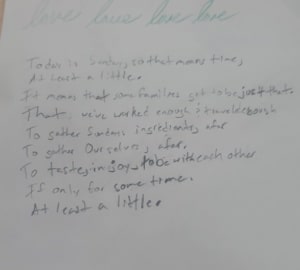 love love love love
Today is Sunday, so that means time,
At least a little.
It means that some families get to be just that
That, we've worked enough & traveled enough
To gather Sundays ingredients, afar
To gather Ourselves, afar.
To taste, in joy, to be with each other
If only for some time.
At least a little.